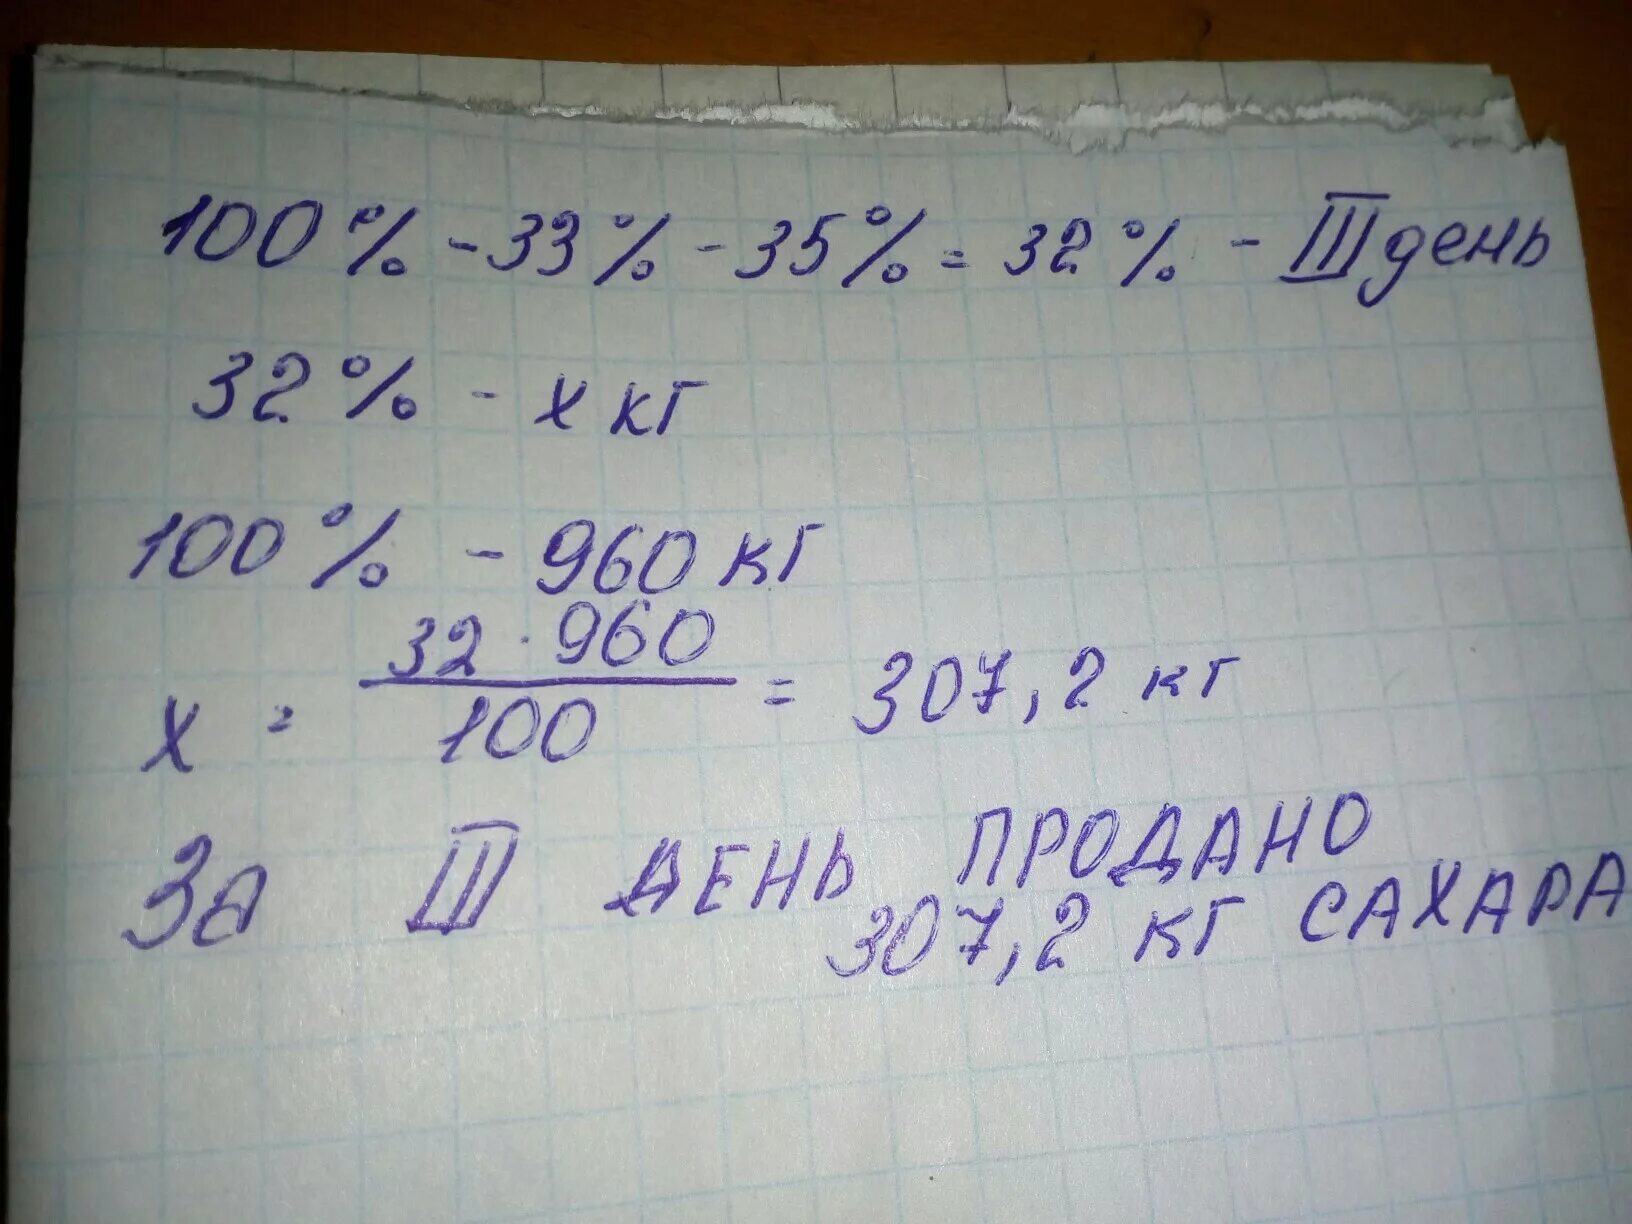 100% - 33% - 35% = 32% - III день
32% - х кг
100% - 960 кг
х = 32 · 960 / 100 = 307,2 кг
За III ДЕНЬ ПРОДАНО
307,2 кг САХАРА